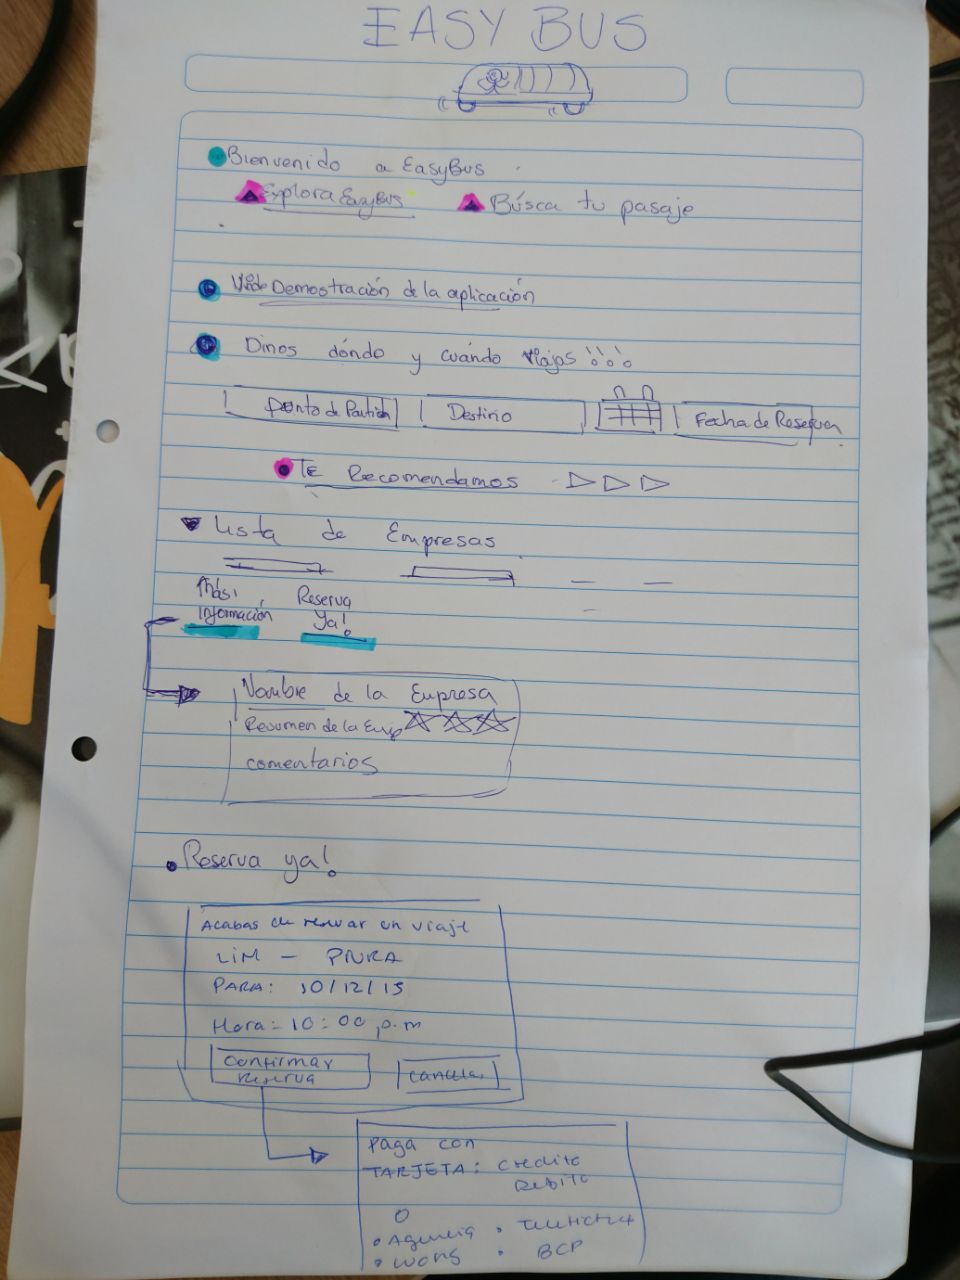 EASY BUS
Bienvenido a EasyBus
Explora EasyBus Búsca tu pasaje
Demostración de la aplicación
Dinos dóndo y cuándo viajas !!!
Punto de Partida Destino Fecha de Reserva
Te Recomendamos
Lista de Empresas
Más Información Reserva Ya!
Nombre de la Empresa
Resumen de la Emp
comentarios
Reserva ya!
Acabas de reservar un viaje
LIM - PIURA
PARA: 10/12/15
Hora: 10:00 p.m
Confirmar reserva Cancelar
Paga con
TARJETA: Credito
Debito
O
Agencia
Wong BCP